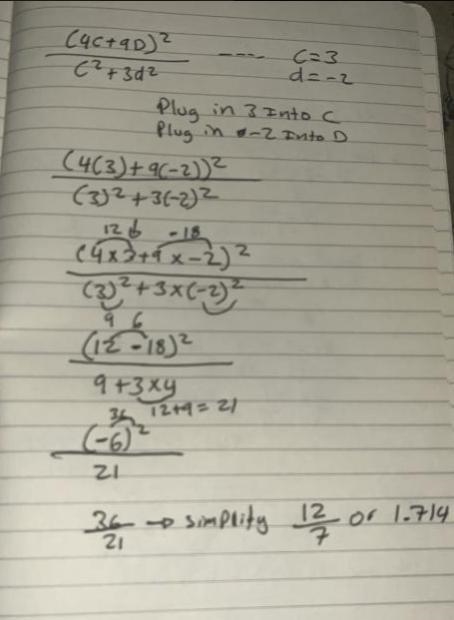 (4C+9D)²
C²+3d²
---- C=3
d=-2
Plug in 3 Into C
Plug in -2 Into D
(4(3)+9(-2))²
(3)²+3(-2)²
12 -18
(4x3+9x-2)²
(3)²+3x(-2)²
9 6
(12-18)²
9+3x4
36 12+9=21
(-6)²
21
36/21 → simplify 12/7 or 1.714